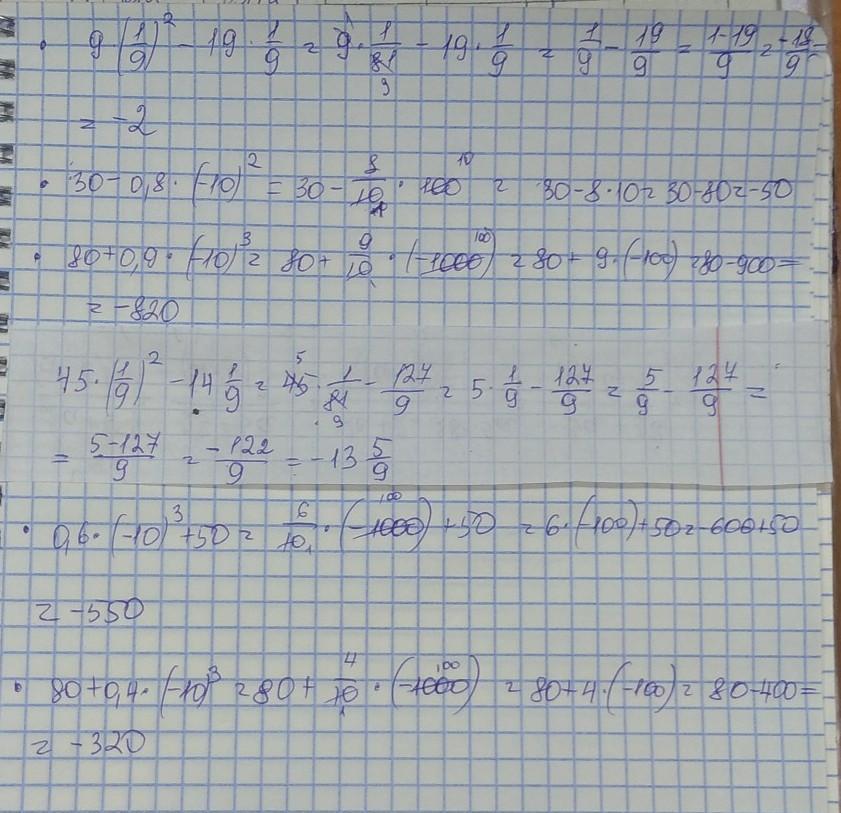 • 9(1/9)² - 19 · 1/9 = 9 · 1/81 - 19 · 1/9 = 1/9 - 19/9 = (1-19)/9 = -18/9 =
= -2
• 30 - 0,8 · (-10)² = 30 - 8/10 · 100 = 30 - 8 · 10 = 30 - 80 = -50
• 80 + 0,9 · (-10)³ = 80 + 9/10 · (-1000) = 80 + 9 · (-100) = 80 - 900 =
= -820
45 · (1/9)² - 14 1/9 = 45 · 1/81 - 127/9 = 5 · 1/9 - 127/9 = 5/9 - 127/9 =
= (5-127)/9 = -122/9 = -13 5/9
• 0,6 · (-10)³ + 50 = 6/10 · (-1000) + 50 = 6 · (-100) + 50 = -600 + 50
= -550
• 80 + 0,4 · (-10)³ = 80 + 4/10 · (-1000) = 80 + 4 · (-100) = 80 - 400 =
= -320